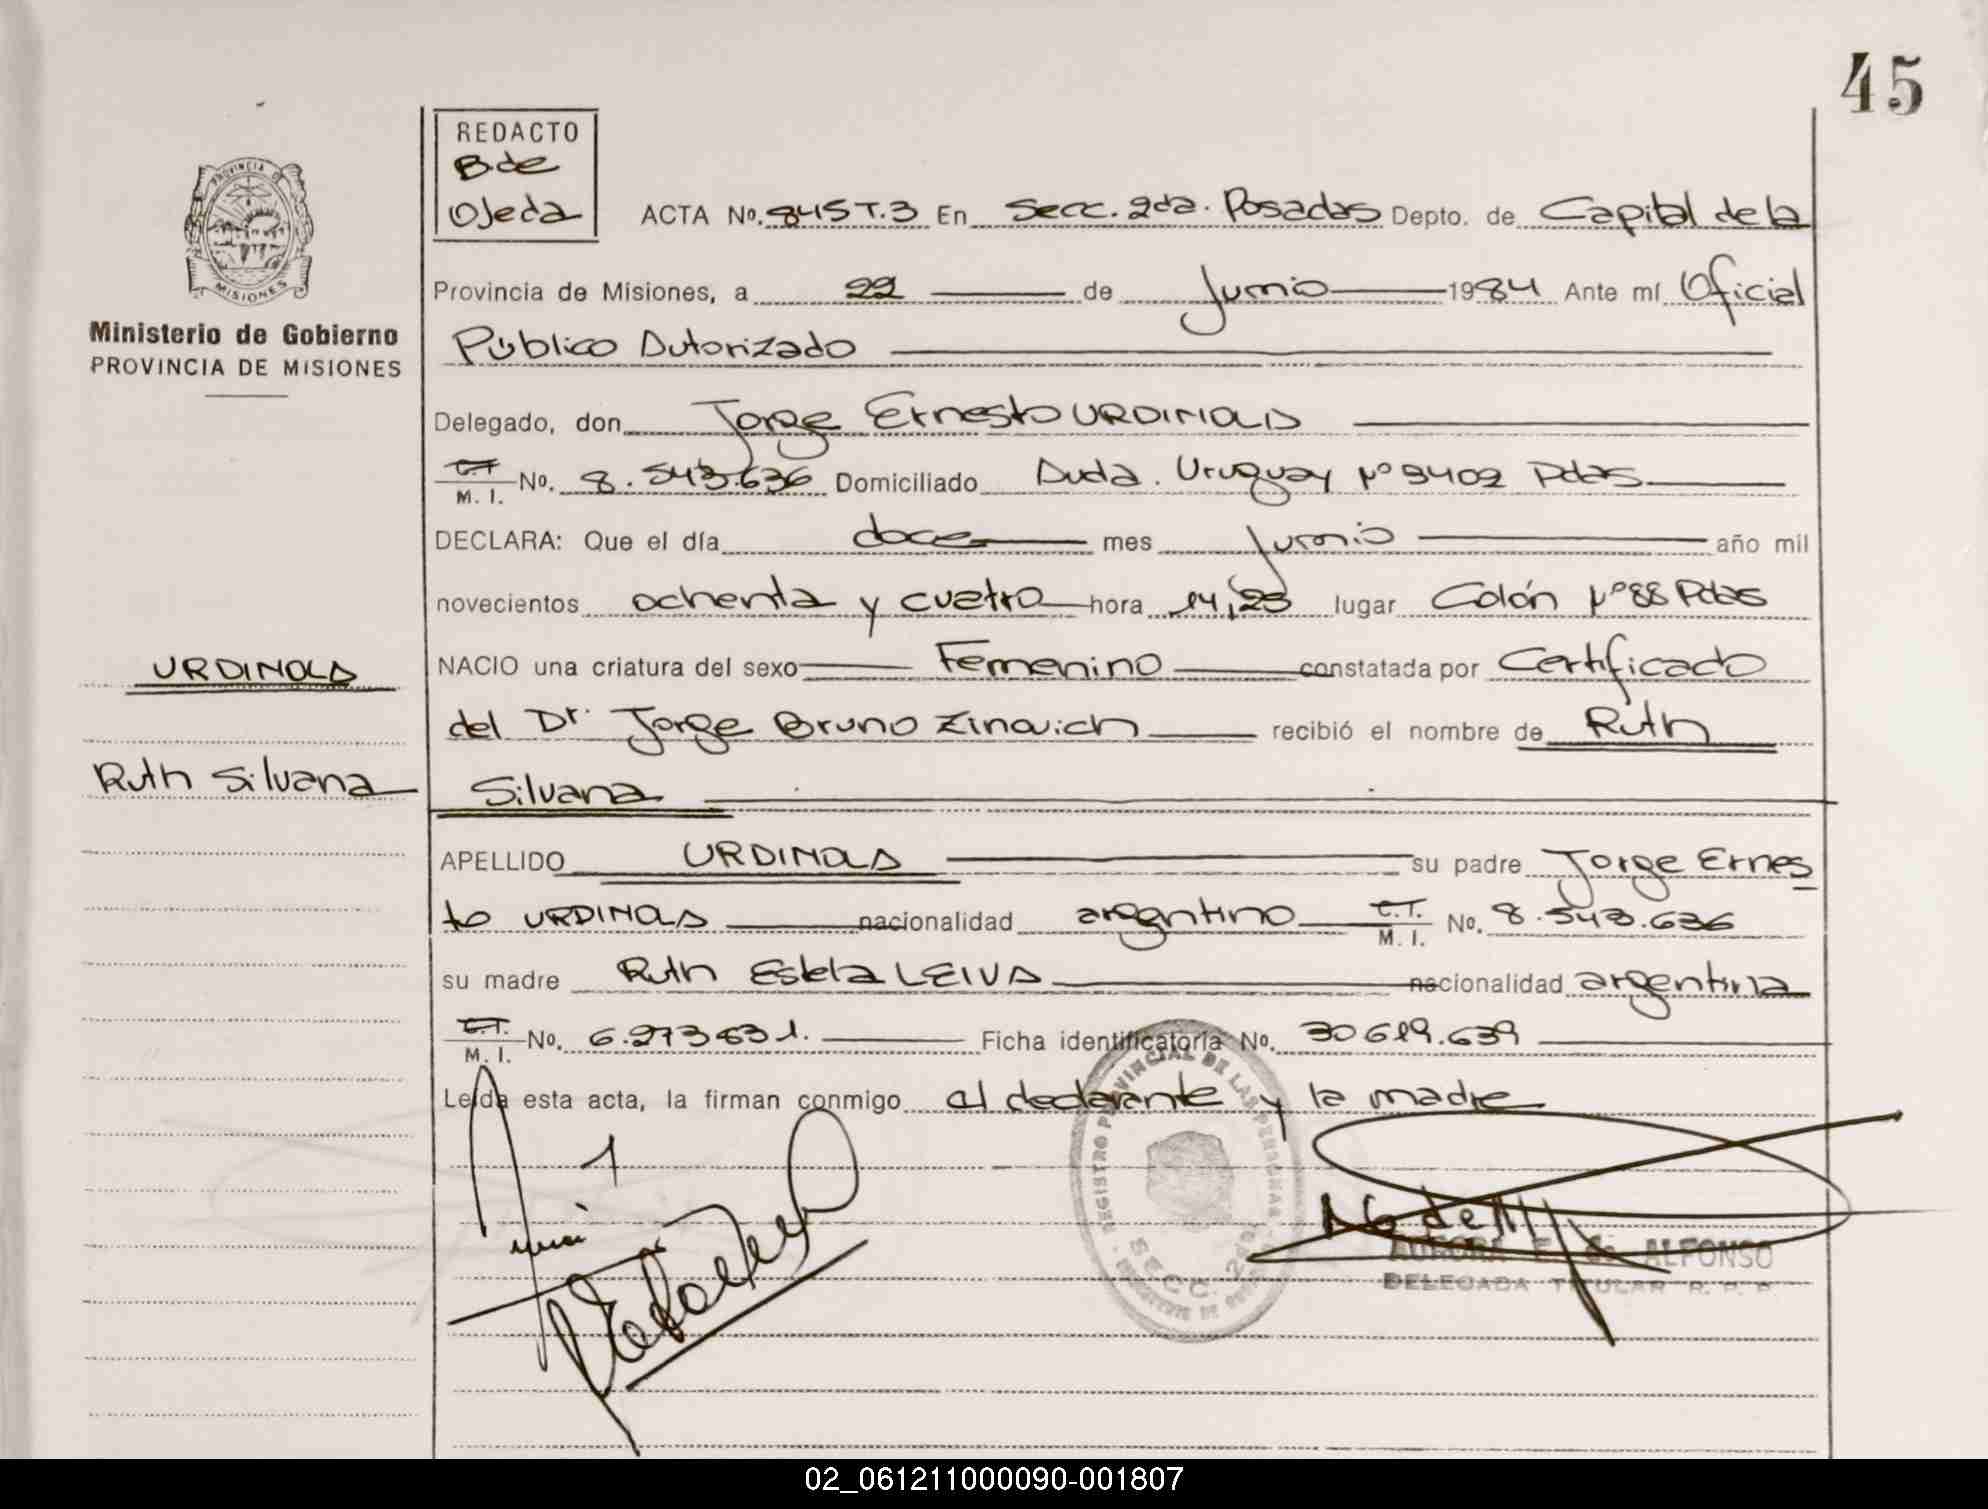 45
REDACTO
B. de
Ojeda
ACTA No. 845 T.3 En Secc. 2da. Posadas Depto. de Capital de la
PROVINCIA D
MISIONES
Provincia de Misiones, a 22 de Junio 1984 Ante mí Oficial
Ministerio de Gobierno
PROVINCIA DE MISIONES
Público Autorizado
Delegado, don Jorge Ernesto URDINOLA
C.I. M. I. No. 8.543.636 Domiciliado Avda. Uruguay Nº 3402 Pdas
DECLARA: Que el día doce mes Junio año mil
novecientos ochenta y cuatro hora 14,25 lugar Colón Nº 88 Pdas
URDINOLA
NACIO una criatura del sexo Femenino constatada por Certificado
del Dr. Jorge Bruno Zinovich recibió el nombre de Ruth
Ruth Silvana
Silvana
APELLIDO URDINOLA su padre Jorge Ernes
to URDINOLA nacionalidad argentino C.I. M. I. No. 8.543.636
su madre Ruth Estela LEIVA nacionalidad argentina
C.I. M. I. No. 6.273.631. Ficha identificatoria No. 30619.639
Leída esta acta, la firman conmigo el declarante y la madre
REGISTRO PROVINCIAL DE LAS PERSONAS
SECC. 2da
AURORA E. de ALFONSO
DELEGADA TITULAR R. P. P.
02_061211000090-001807